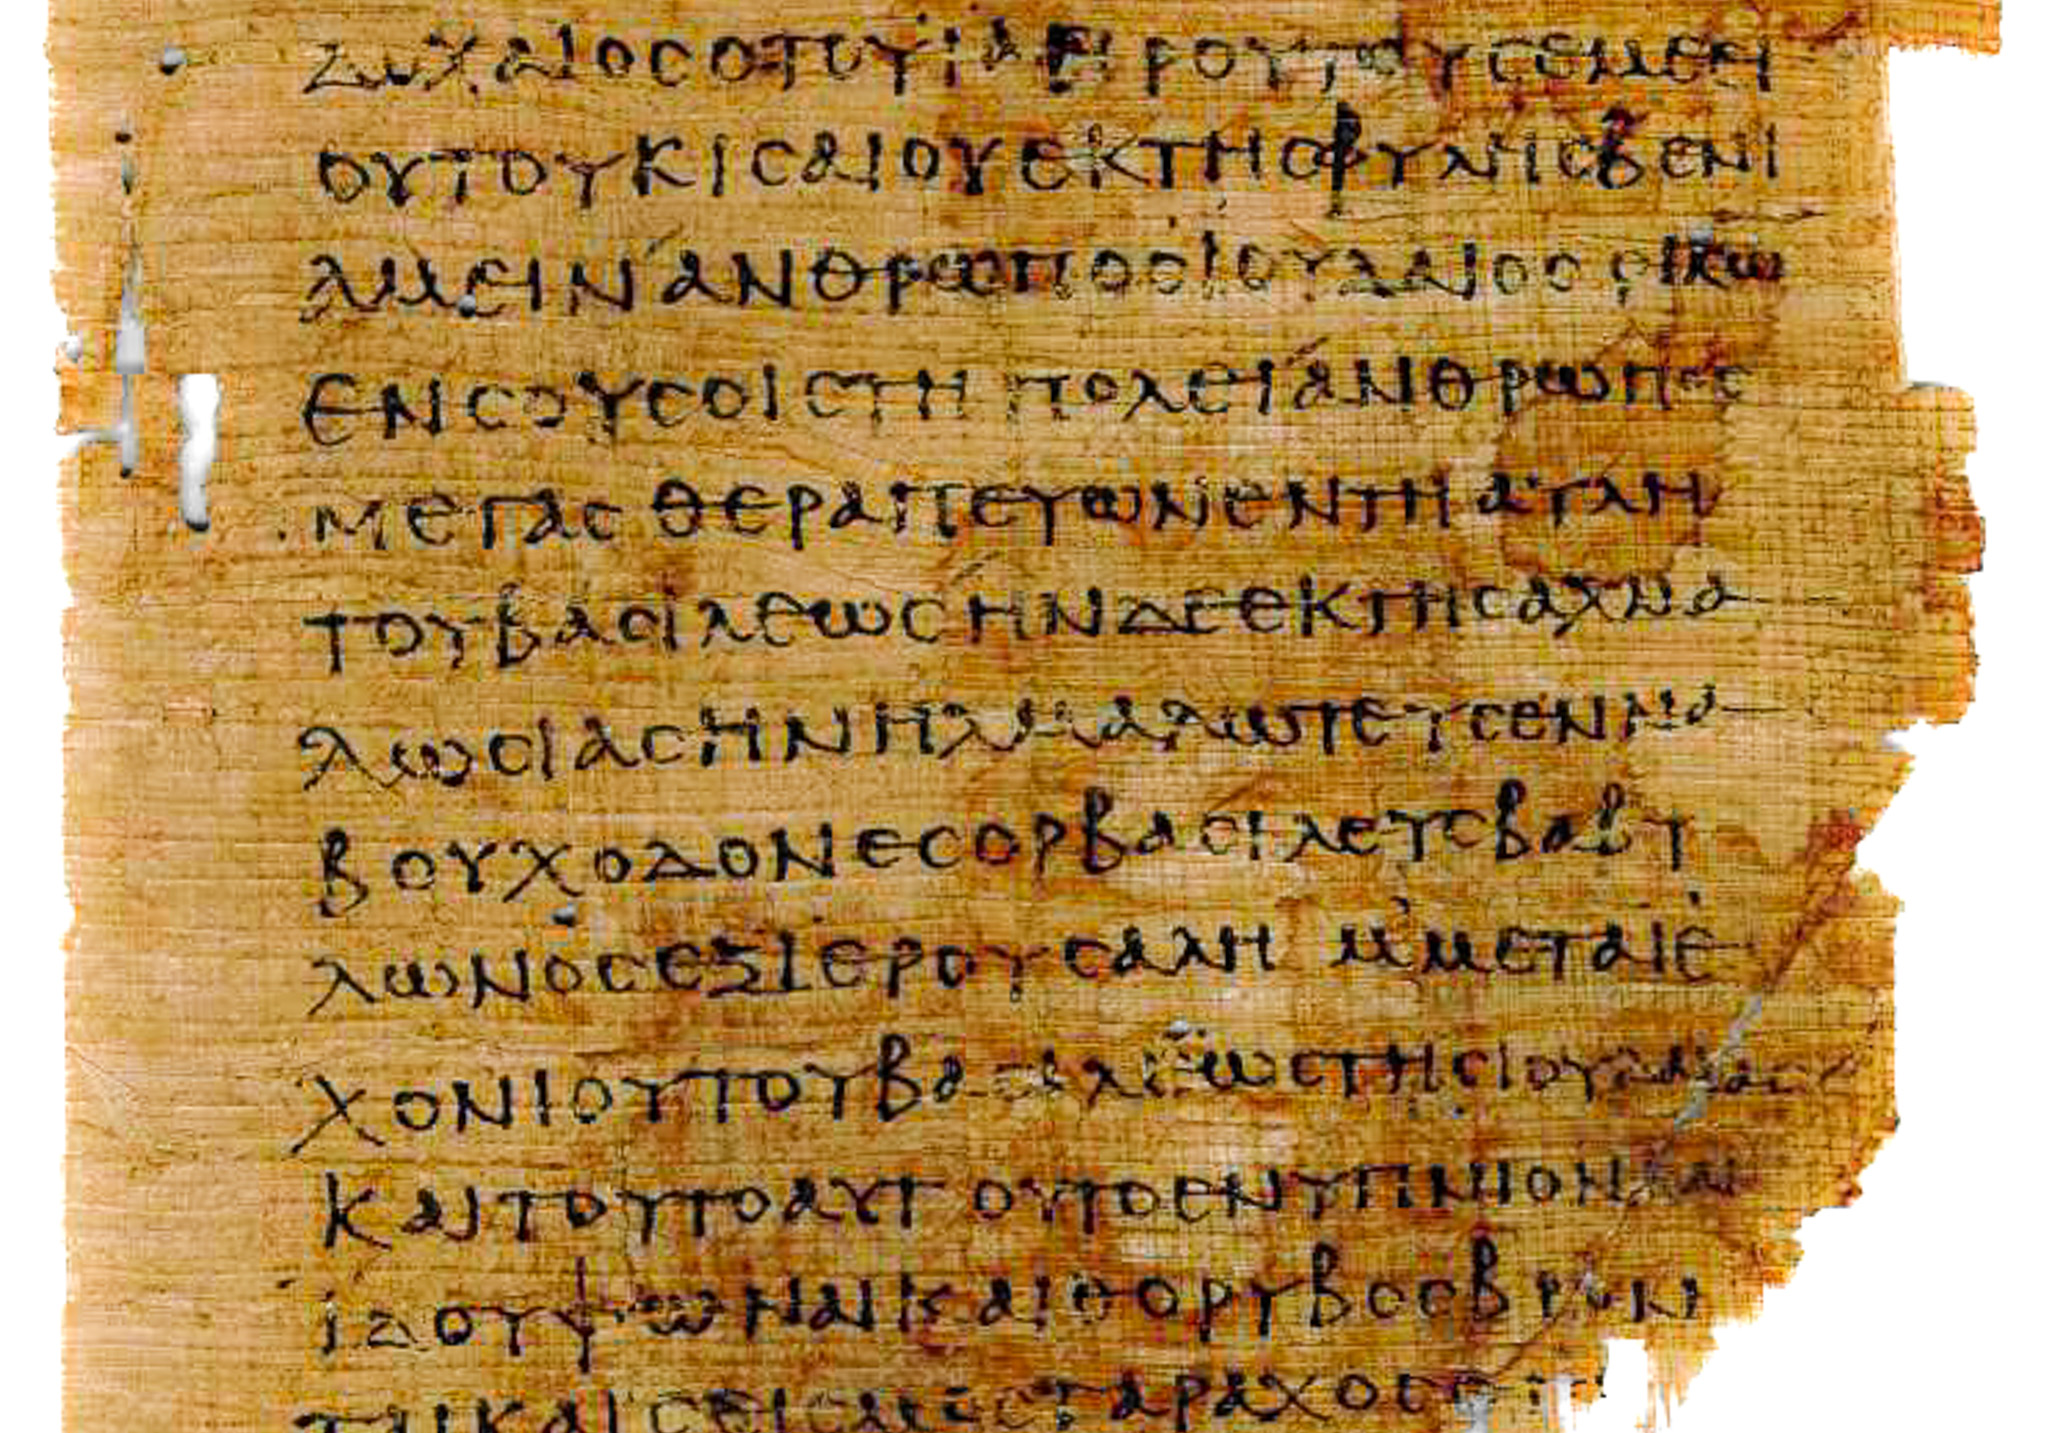 ΔΟΧΑΙΟΣ Ο ΤΟΥ ΪΑΕΙΡΟΥ ΤΟΥ ΣΕΜΕΕΙ
ΟΥ ΤΟΥ ΚΙΣΑΙΟΥ ΕΚ ΤΗΣ ΦΥΛΗΣ ΒΕΝΙ
ΑΜΕΙΝ ΑΝΘΡΩΠΟΣ ΙΟΥΔΑΙΟΣ ΟΙΚΩ
ΕΝ ΣΟΥΣΟΙΣ ΤΗ ΠΟΛΕΙ ΑΝΘΡΩΠΟΣ
ΜΕΓΑΣ ΘΕΡΑΠΕΥΩΝ ΕΝ ΤΗ ΑΥΛΗ
ΤΟΥ ΒΑΣΙΛΕΩΣ ΗΝ ΔΕ ΕΚ ΤΗΣ ΑΙΧΜΑ
ΛΩΣΙΑΣ ΗΝ ΗΧΜΑΛΩΤΕΥΣΕΝ ΝΑ
ΒΟΥΧΟΔΟΝΕΣΟΡ ΒΑΣΙΛΕΥΣ ΒΑΒΥ
ΛΩΝΟΣ ΕΞ ΙΕΡΟΥΣΑΛΗΜ ΜΕΤΑ ΙΕ
ΧΟΝΙΟΥ ΤΟΥ ΒΑΣΙΛΕΩΣ ΤΗΣ ΙΟΥΔΑΙΑΣ
ΚΑΙ ΤΟΥΤΟ ΑΥΤΟΥ ΤΟ ΕΝΥΠΝΙΟΝ ΚΑΙ
ΪΔΟΥ ΦΩΝΑΙ ΚΑΙ ΘΟΡΥΒΟΣ ΒΡΟΝ
ΤΑΙ ΚΑΙ ΣΕΙΣΜΟΣ ΤΑΡΑΧΟΣ